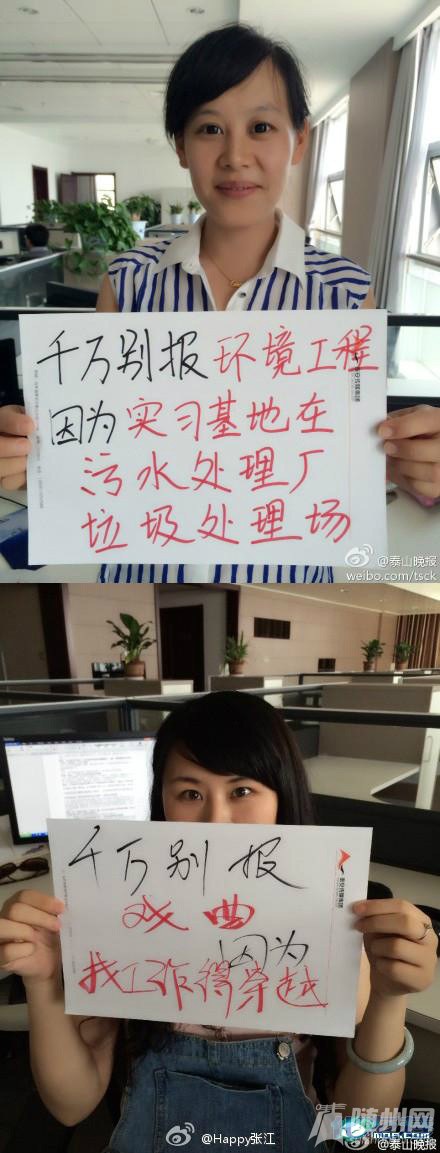 千万别报环境工程
因为实习基地在
污水处理厂
垃圾处理场
@泰山晚报
weibo.com/tsck
千万别报
戏曲
因为
找工作得穿越
泰安传媒集团
@Happy张江
随州网
@泰山晚报